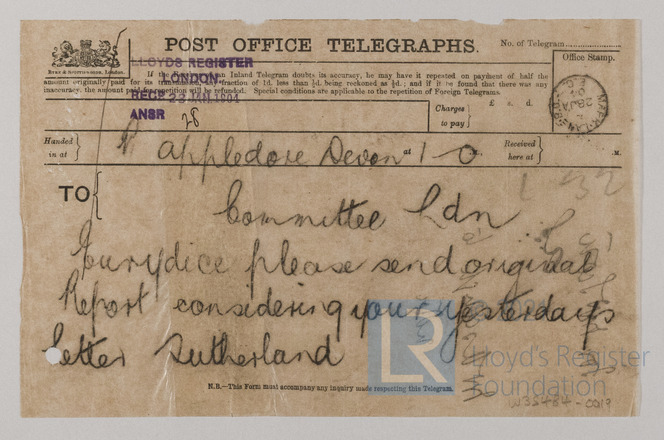 POST OFFICE TELEGRAPHS.
No. of Telegram
LLOYDS REGISTER
LONDON.
RECD 23 JAN 1904
ANSR
28
If the Receiver of an Inland Telegram doubts its accuracy, he may have it repeated on payment of half the
amount originally paid for its transmission, any fraction of 1d. less than ½d. being reckoned as ½d.; and if it be found that there was any
inaccuracy, the amount paid for repetition will be refunded. Special conditions are applicable to the repetition of Foreign Telegrams.
Office Stamp.
Charges to pay £ s. d.
Handed in at Appledore Devon at 1-0 .M. Received here at .M.
TO Committee Ldn
Eurydice please send original
Report considering your yesterdays
letter Sutherland
N.B.—This Form must accompany any inquiry made respecting this Telegram.
LR
Lloyd's Register
Foundation
W35484-0019